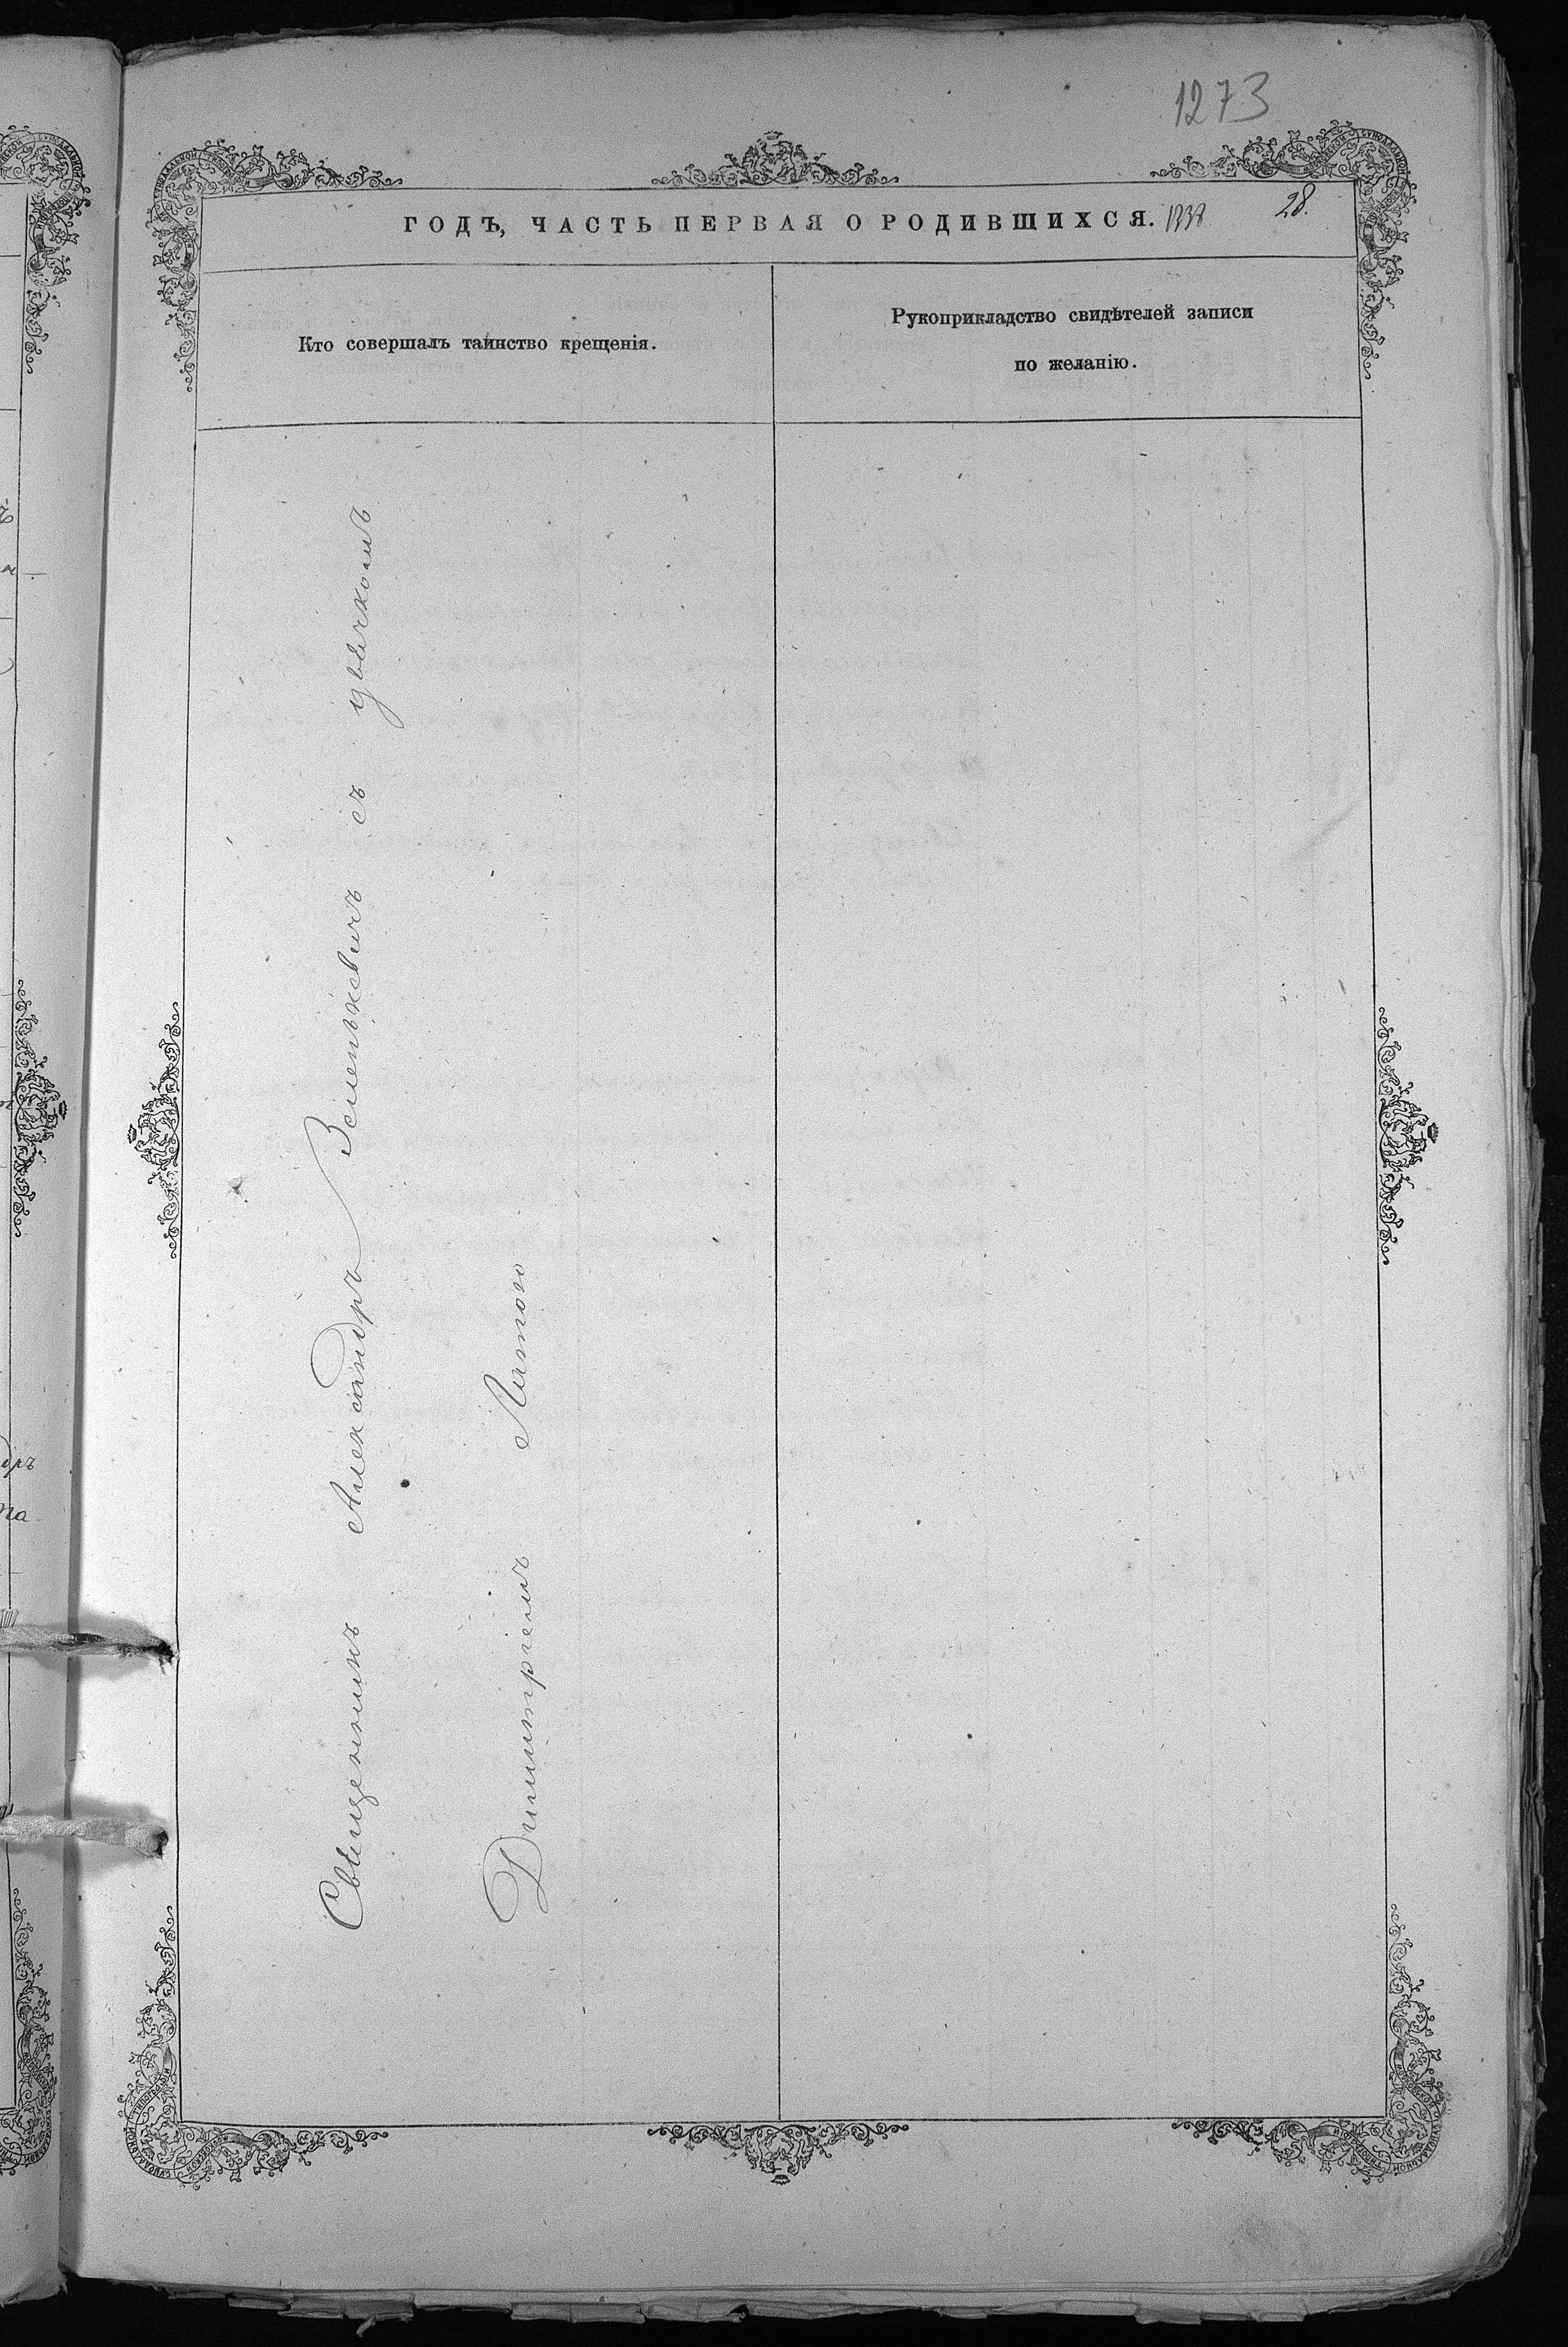 1273
ГОДЪ, ЧАСТЬ ПЕРВАЯ О РОДИВШИХСЯ. 28.
Кто совершалъ таинство крещенія.
Рукоприкладство свидѣтелей записи
по желанію.
Священникъ Александръ Зеленкевичъ съ дьячкомъ
Димитріемъ